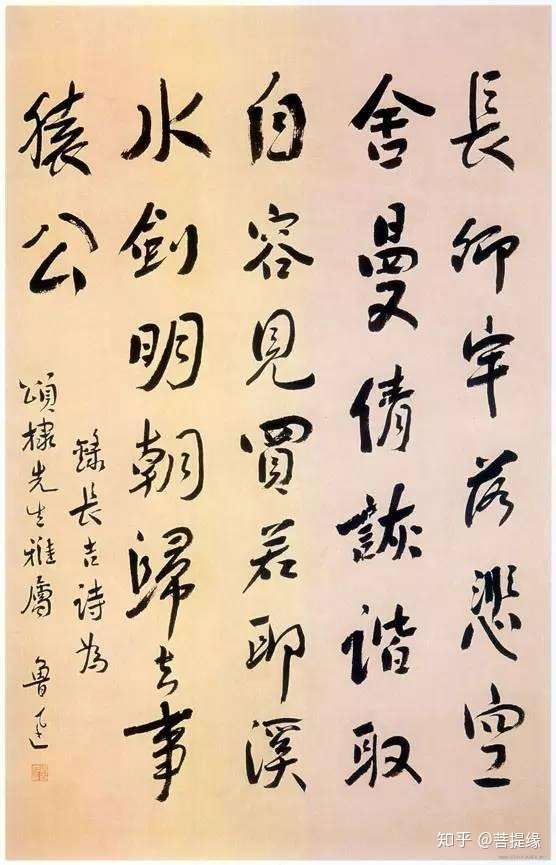 長卿牢落悲空
舍曼倩詼諧取
自容見買若耶溪
水劍明朝歸去事
猿公
錄長吉詩為
頌棣先生雅屬 魯迅
知乎 @菩提缘